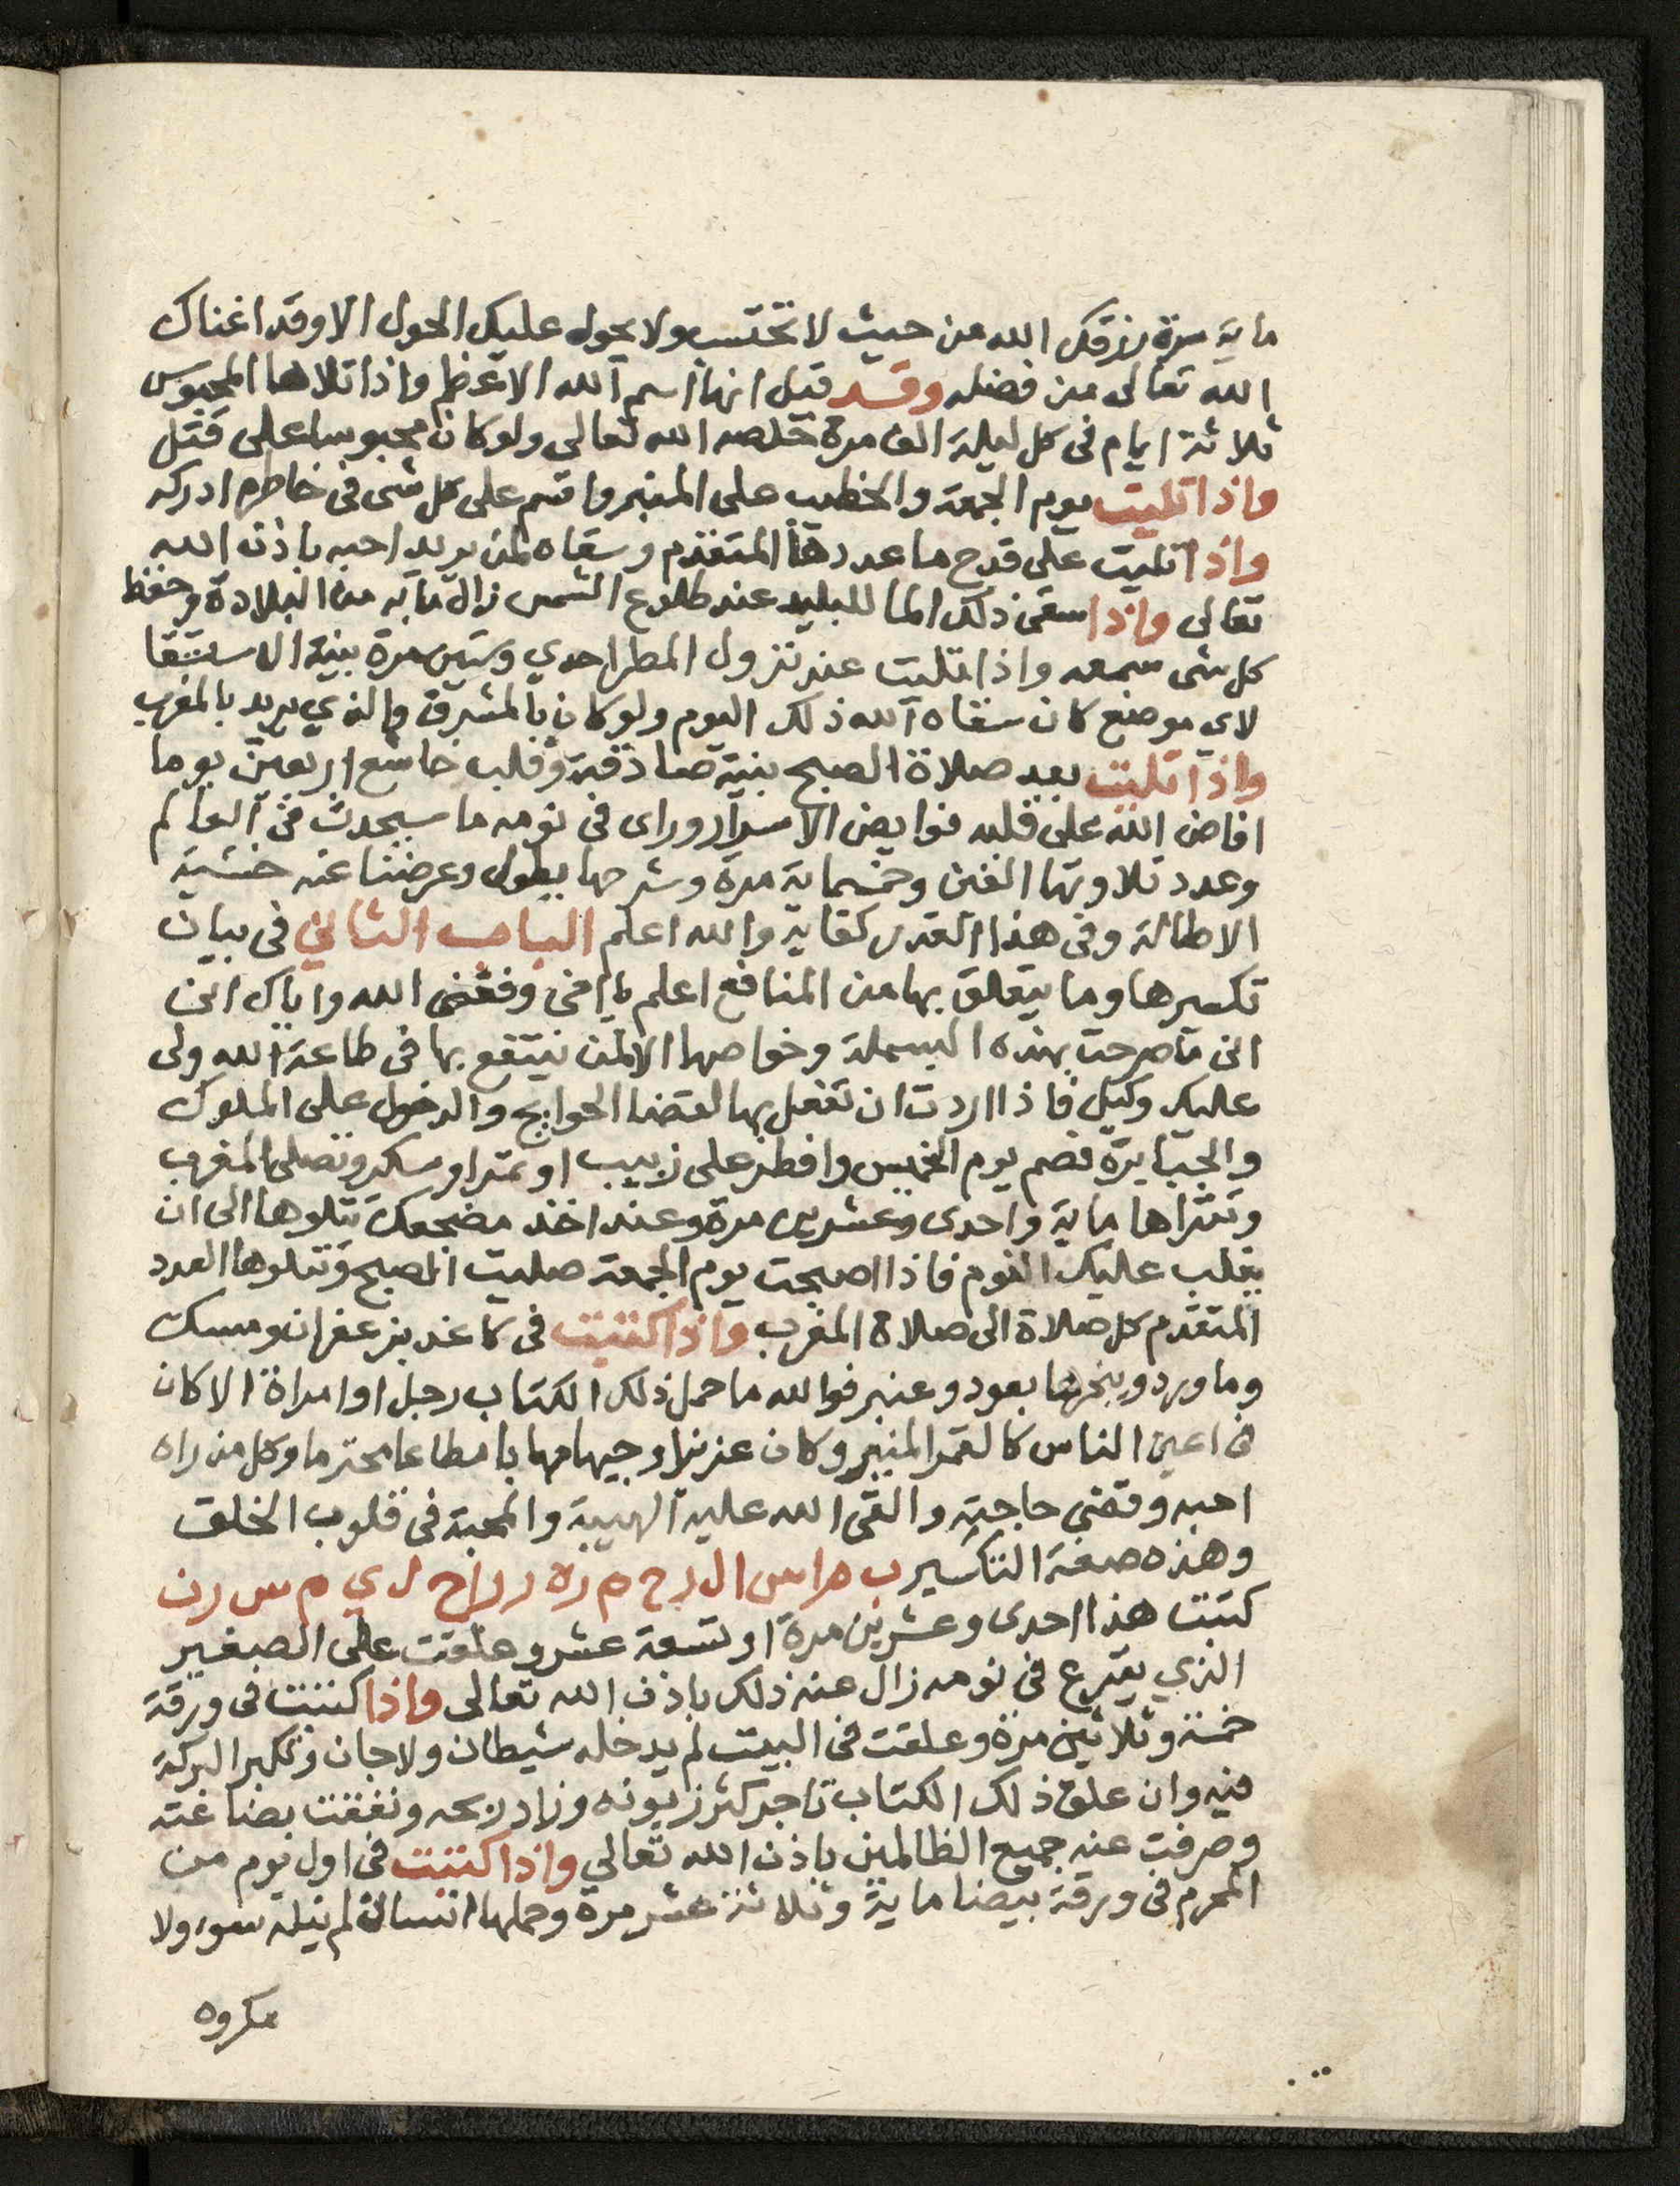 ماية مرة رزقك الله من حيث لا تحتسب ولا يحول عليك الحول الا وقد اغناك
الله تعالى من فضله وقد قيل انها اسم الله الاعظم واذا تلاها المحبوس
ثلاثة ايام فى كل ليلة الف مرة خلصه الله تعالى ولو كان محبوسا على قتل
واذا تليت يوم الجمعة والخطيب على المنبر واقسم على كل شى فى خاطره ادركه
واذا تليت على قدح ما عددها المتقدم وسقاه لمن يريد احبه باذن الله
تعالى واذا سقى ذلك الما للبليد عند طلوع الشمس زال مابه من البلادة وحفظ
كل شى سمعه واذا تليت عند نزول المطر احدي وستين مرة بنية الاستسقا
لاي موضع كان سقاه الله ذلك اليوم ولو كان بالمشرق والذي يريد بالمغرب
واذا تليت بعد صلاة الصبح بنية صادقة وقلب خاشع اربعين يوما
افاض الله على قلبه فوايض الاسرار وراى فى نومه ما سيحدث فى العالم
وعدد تلاوتها الفين وخمسماية مرة وشرحها يطول وعرضنا عنه خشية
الاطالة وفى هذا القدر كفاية والله اعلم الباب الثاني فى بيان
تكسيرها وما يتعلق بها من المنافع اعلم يا اخى وفقنى الله واياك انى
انى ما صرحت بهذه البسملة وخواصها الا لمن ينتفع بها فى طاعة الله ولى
عليك وكيل فاذا اردت ان تفعل بها لقضا الحوايج والدخول على الملوك
والجبابرة فصم يوم الخميس وافطر على زبيب او تمر او سكر وتصلى المغرب
وتقراها ماية واحدى وعشرين مرة وعند اخذ مضجعك تتلوها الى ان
يغلب عليك النوم فاذا اصبحت يوم الجمعة صليت الصبح وتتلوها العدد
المتقدم كل صلاة الى صلاة المغرب واذا كتبت فى كاغد بزعفران ومسك
وماورد وبخرها بعود وعنبر فوالله ما حمل ذلك الكتاب رجل او امراة الا كان
فى اعين الناس كالقمر المنير وكان عزيزا وجيها مهابا مطاعا محترما وكل من راه
احبه وقضي حاجته والقى الله عليه الهيبة والمحبة فى قلوب الخلق
وهذه صفة التكسير ب ه ا س ا ل ر ح م ر ه ر ر ا ح ل ي م س ر ن
كتبت هذا احدى وعشرين مرة او تسعة عشر وعلقت على الصغير
الذي يقرع فى نومه زال عنه ذلك باذن الله تعالى واذا كتبت فى ورقة
خمسة وثلاثين مرة وعلقت فى البيت لم يدخله شيطان ولا جان وتكبر البركة
فيه وان علق ذلك الكتاب تاجر كثر زبونه وزاد ربحه ونفقت بضاعته
وصرفت عنه جميع الظالمين باذن الله تعالي واذا كتبت فى اول يوم من
المحرم فى ورقة بيضا ماية وثلاثة عشر مرة وحملها انسان لم ينله سوء ولا
مكروه